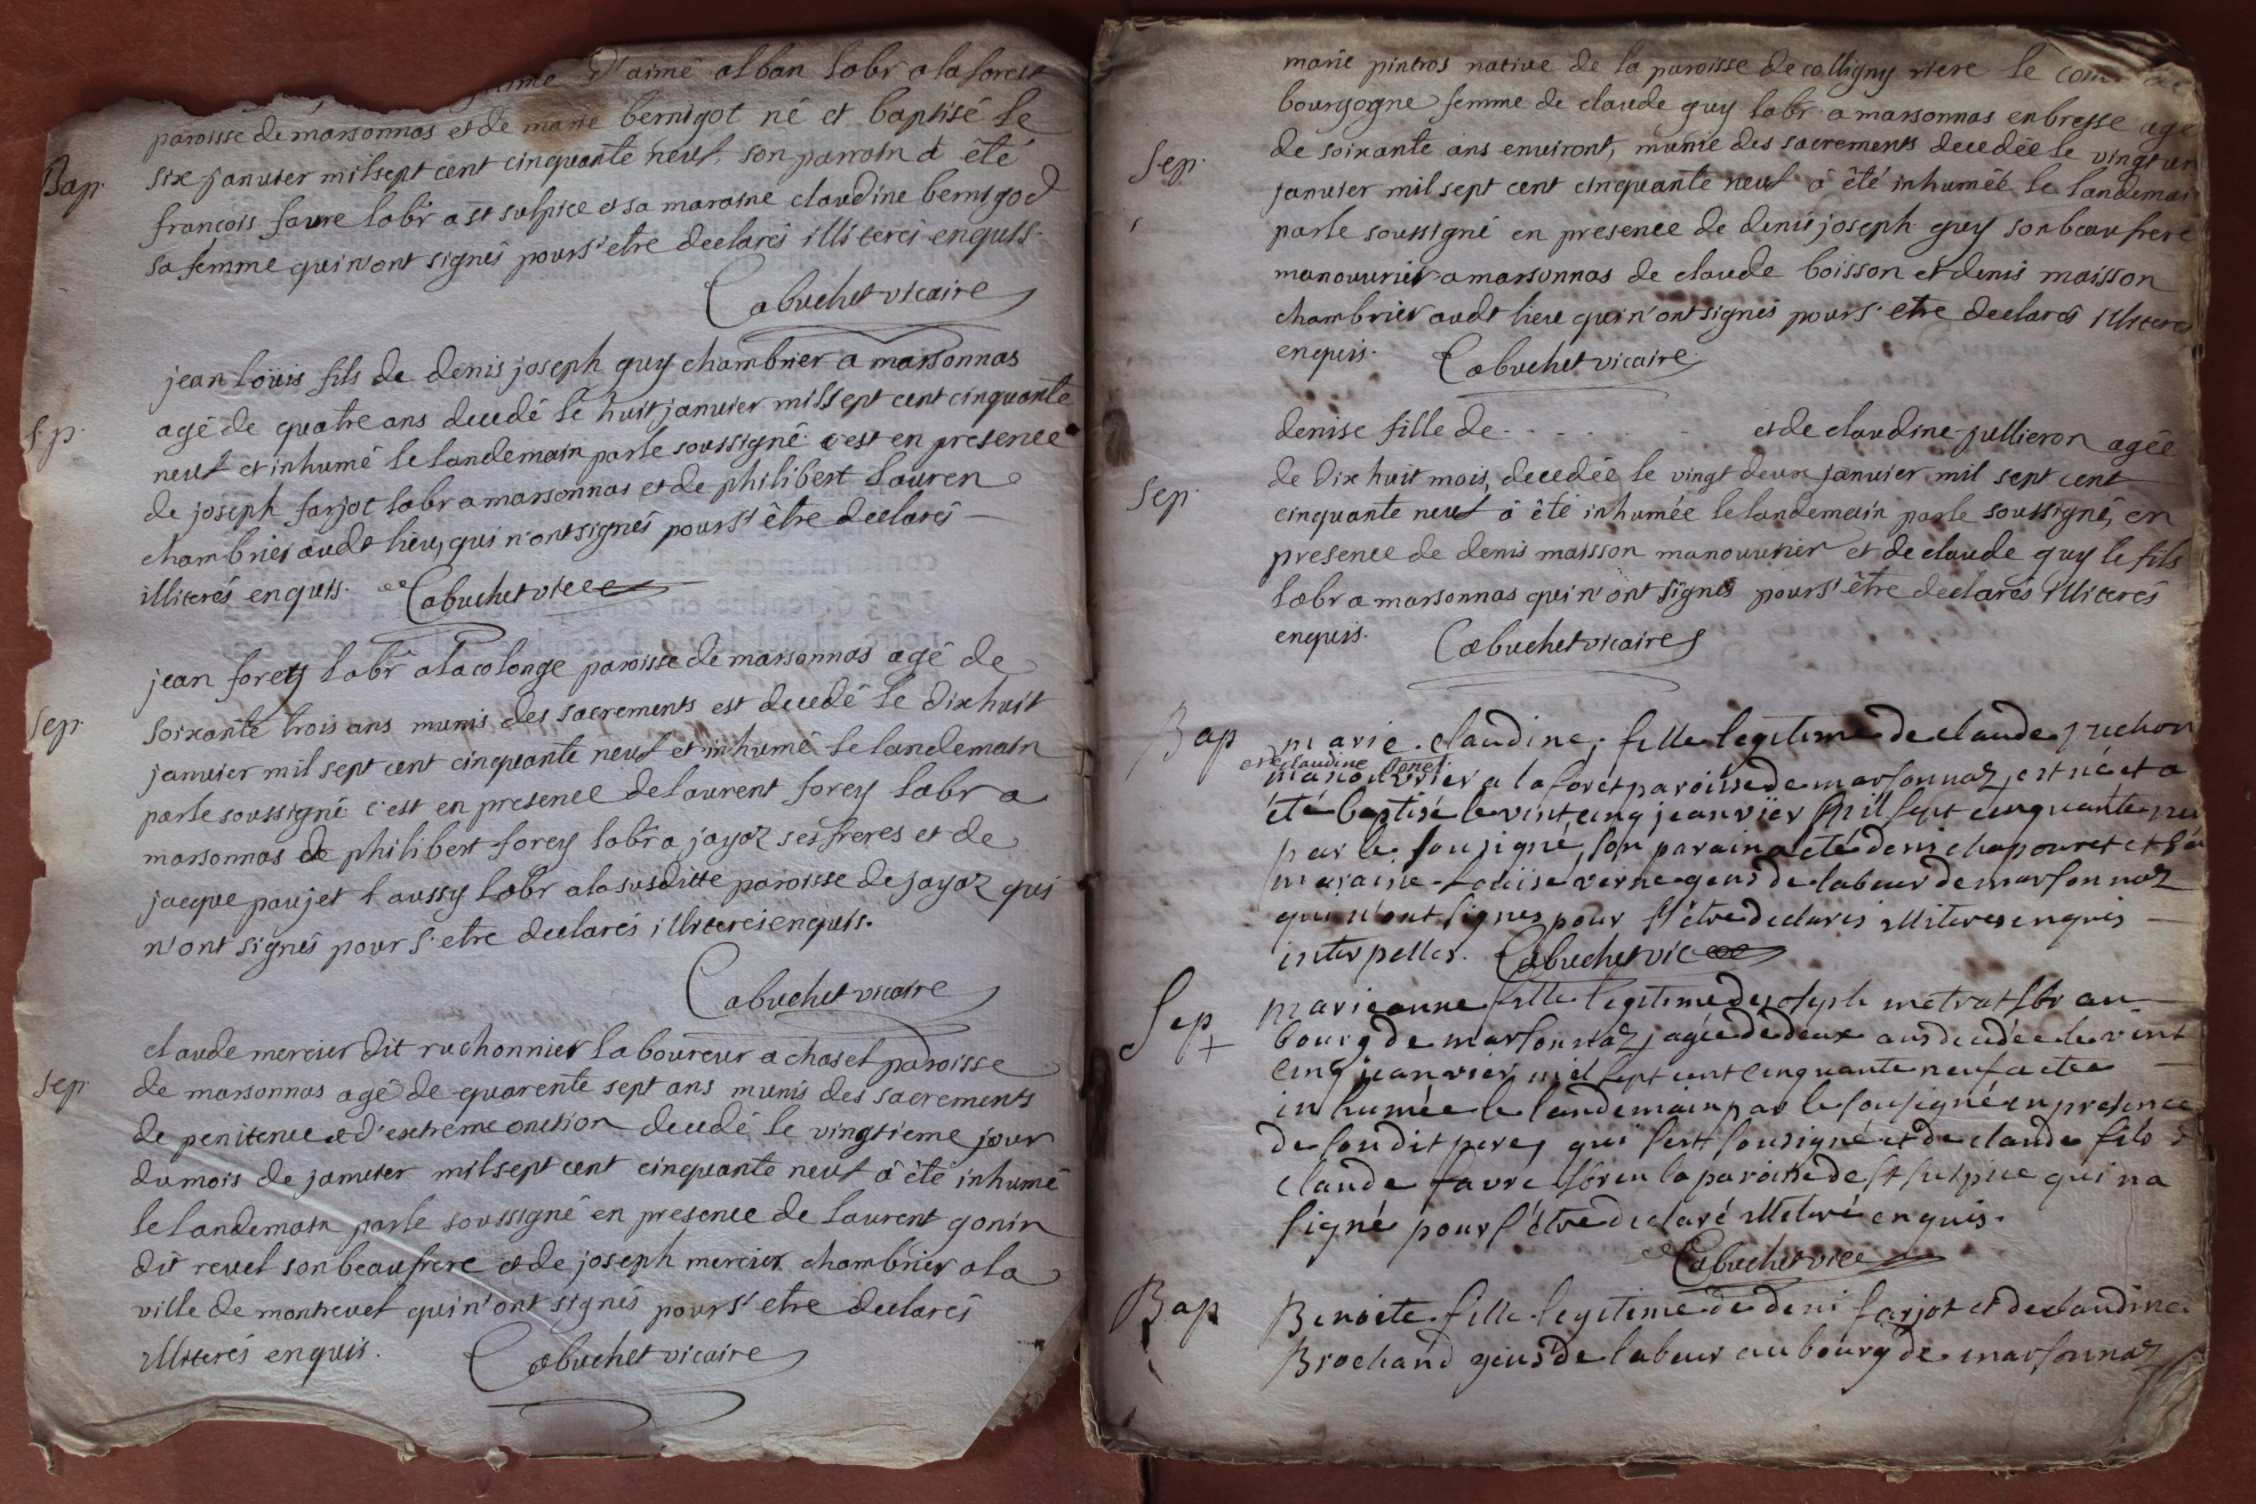 d'aimé alban labr a la forest
paroisse de marsonnas et de marie bernigot né et baptisé le
Bap. six janvier mil sept cent cinquante neuf. son parrain a été
francois favre labr a st sulpice et sa maraine claudine bernigod
sa femme qui n'ont signés pour s'etre declarés illiterés enquis.
Cabuchet vicaire
jean loüis fils de denis joseph guy chambrier a marsonnas
agé de quatre ans decedé le huit janvier mil sept cent cinquante
sep. neuf et inhumé le landemain par le soussigné c'est en presence
de joseph farjot labr a marsonnas et de philibert lauren
chambrier audt lieu, qui n'ont signés pour s'être declarés
illiterés enquis. Cabuchet vicee
jean forey labr a la colonge paroisse de marsonnas agé de
Sep. soixante trois ans munis des sacrements est decedé le dix huit
janvier mil sept cent cinquante neuf et inhumé le landemain
par le soussigné c'est en presence de laurent forey labr a
marsonnas de philibert forey labr a jayaz ses freres et de
jacque paujet l'aussy labr a la susditte paroisse de jayaz qui
n'ont signés pour s'etre declarés illiterés enquis.
Cabuchet vicaire
claude mercier dit ruchonnier laboureur a chasel paroisse
Sep. de marsonnas agé de quarente sept ans munis des sacrements
de penitence et d'extreme onction decedé le vingtieme jour
du mois de janvier mil sept cent cinquante neuf a été inhumé
le landemain par le soussigné en presence de laurent gonin
dit revel son beaufrere et de joseph mercier chambrier a la
ville de montrevel qui n'ont signés pour s'etre declarés
illiterés enquis. Cabuchet vicaire
marie pintros native de la paroisse de colligny riere le
bourgogne femme de claude guy labr a marsonnas en bresse agé
Sep. de soixante ans environt, munie des sacrements decedée le vingt un
janvier mil sept cent cinquante neuf a été inhumée le landemai
par le soussigné en presence de denis joseph guy son beaufrere
manouvrier a marsonnas de claude boisson et denis maisson
chambrier audt lieu qui n'ont signés pour s'etre declarés illiterés
enquis. Cabuchet vicaire
denise fille de . . . . . . et de claudine jullieron agée
Sep. de dix huit mois, decedée le vingt deux janvier mil sept cent
cinquante neuf a été inhumée le landemain par le soussigné, en
presence de denis maisson manouvrier et de claude guy le fils
labr a marsonnas qui n'ont signés pour s'être declarés illiterés
enquis. Cabuchet vicaire
Bap marie claudine, fille legitime de claude ruchon
et claudine
manouvrier a la foret paroisse de marsonnaz, est né et a
été baptisé le vint cinq jeanvier mil sept cinquante neu
par le sousigné, son parain a eté deni chapouret et sa
maraine Loüise verne gens de labeur de marsonnaz
qui n'ont signes pour s'être declares illiteres enquis
interpelles. Cabuchet vicee
Sep marieanne fille legitime de joseph metrat lbr au
+ bourg de marsonnaz, agée de deux ans decedée le vint
cinq jeanvier mil sept cent cinquante neuf a eté
inhumée le landemain par le sousigné en presence
de son dit pere, qui s'est sousigné et de claude fils d
claude favre lbr en la paroisse de st sulpice qui na
signé pour s'être declaré illiteré enquis.
Cabuchet vicee
Bap Benoite fille legitime de deni farjot et de claudine
Brochand gens de labeur au bourg de marsonnaz